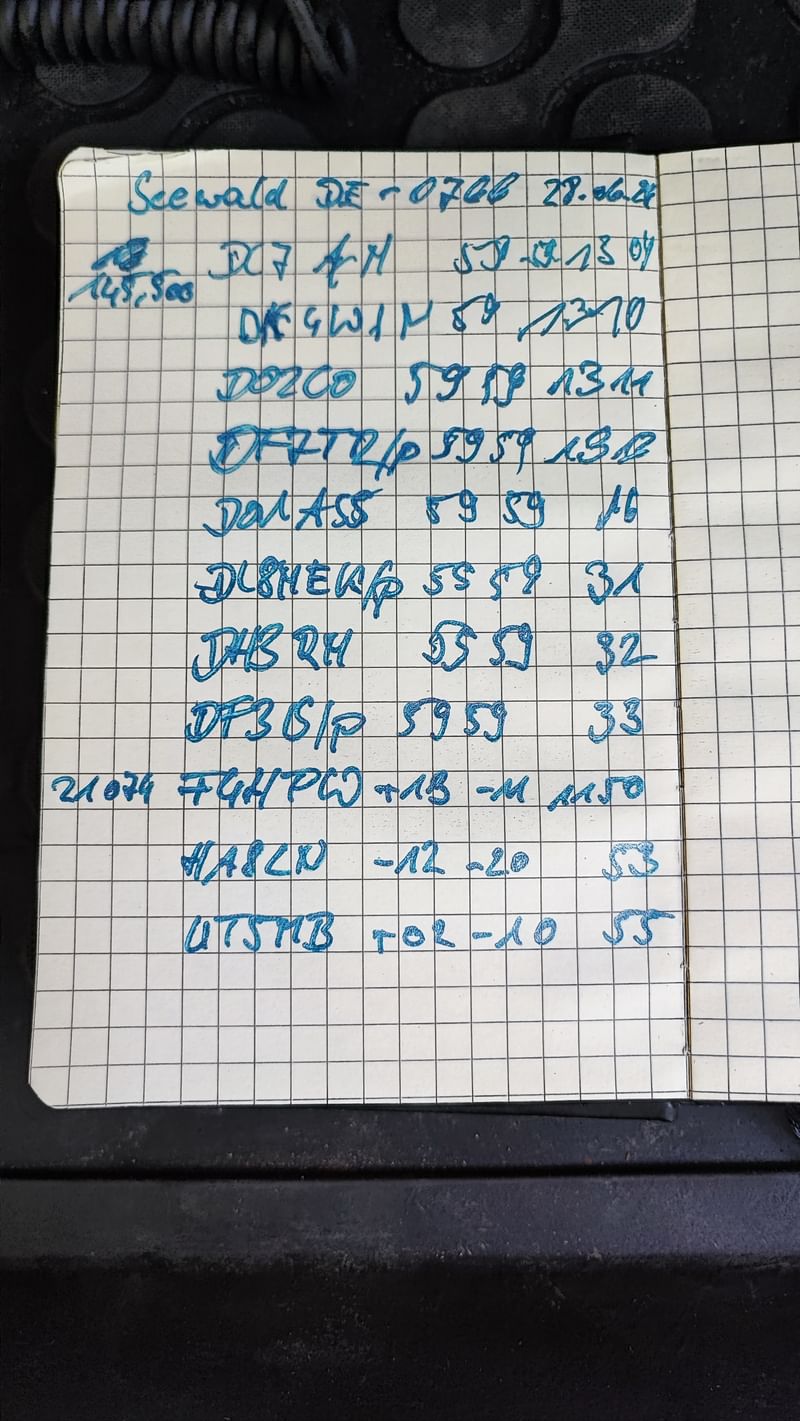 Seewald DE-0766 28.06.24
DC7 59 59 13 04
145,500
59 1310
DO2CO 59 59 1311
DF7TR/p 59 59 1312
DO1ASS 59 59 16
DL8MEK/p 55 59 31
DH3RM 55 59 32
DF3 /p 59 59 33
21074 F4HPW -11 1150
HA8LN -12 -20 53
UT5MB +02 -10 55